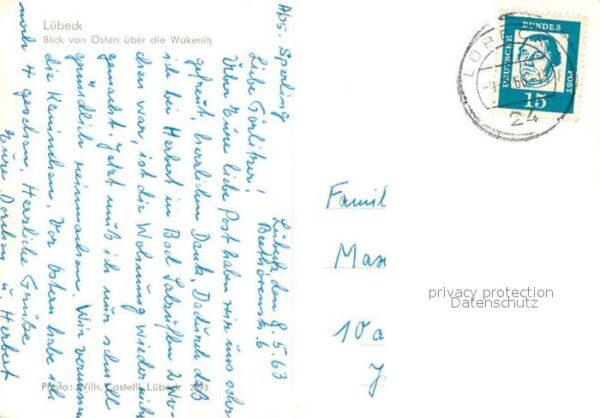 Lübeck
Blick von Osten über die Wakenitz
Abs. Sperling
Lübeck, den 8.5.63
Beethovenstr. 6
Liebe Görlitzer!
Über Eure liebe Post haben wir uns sehr
gefreut, herzlichen Dank. Dadurch daß
ich bei Herbert in Bad Salzuflen 2 Wo-
chen war, ist die Wohnung wieder nicht
gemacht. Jetzt muß ich nun schnell
gründlich reinmachen. Wir
die Kaninchen. Vor Ostern habe ich
noch 4 gesehen. Herzliche Grüße
Eure u. Herbert
Photo: Wilh. Castelli, Lübeck
DEUTSCHE BUNDESPOST
15
LÜBECK
Famil
Max
10 a
privacy protection
Datenschutz